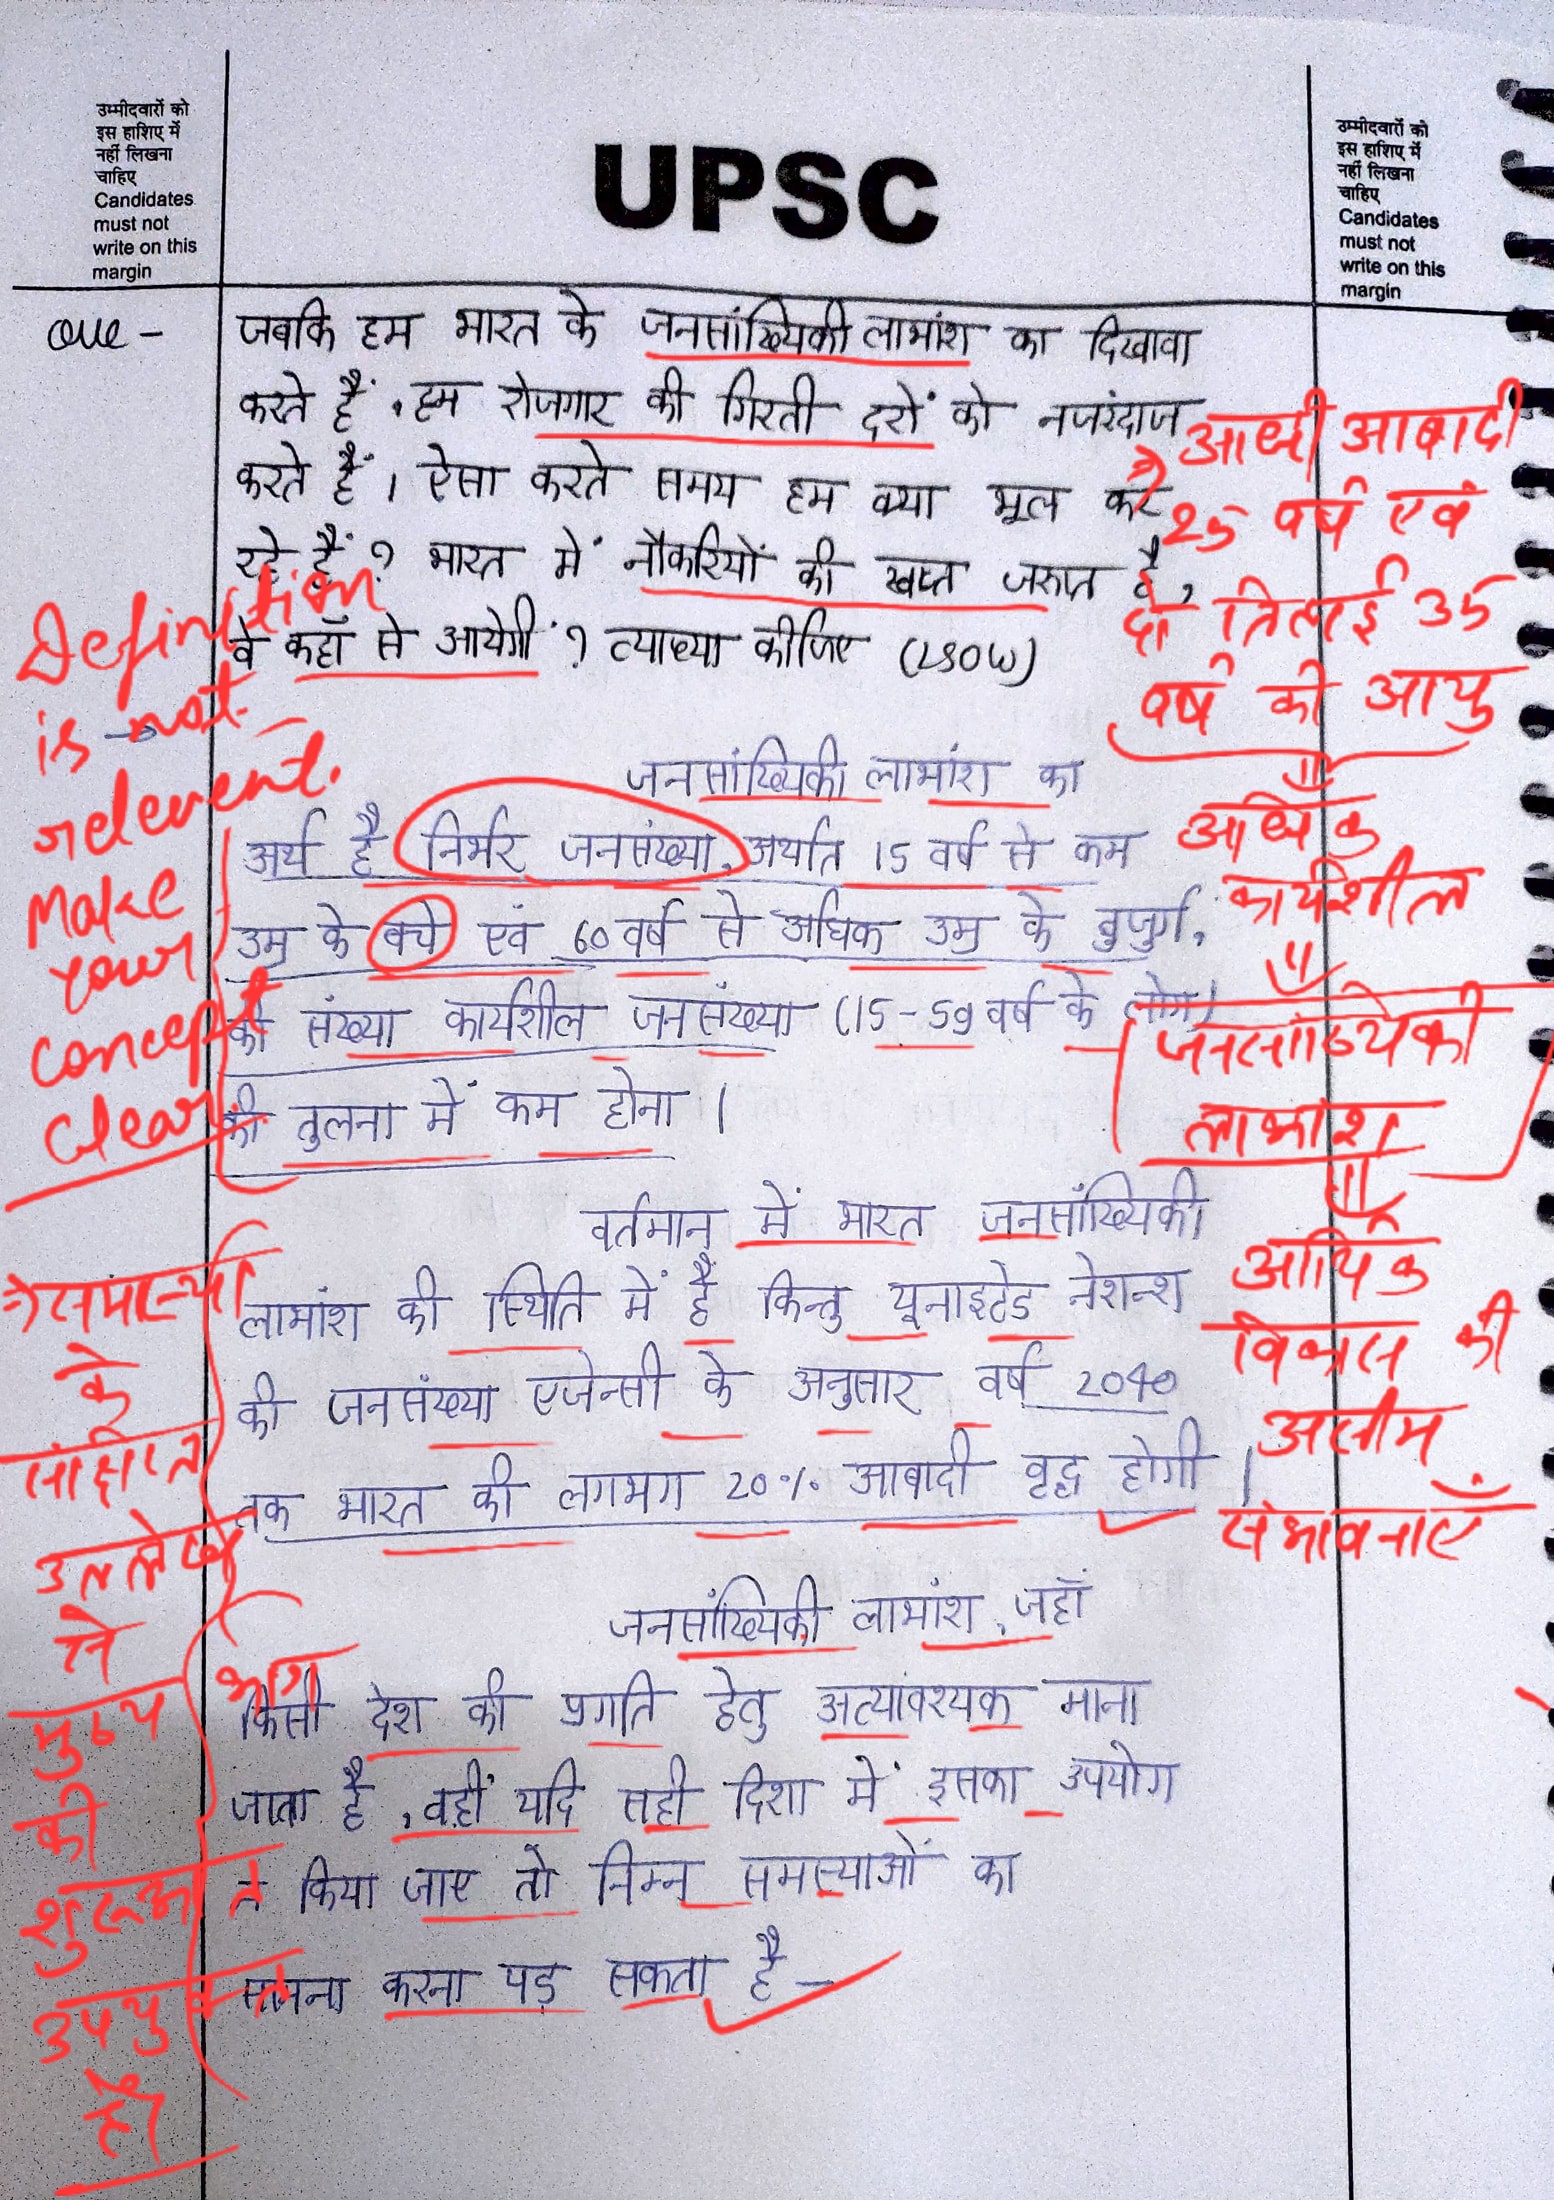 उम्मीदवारों को
इस हाशिए में
नहीं लिखना
चाहिए
Candidates
must not
write on this
margin
UPSC
उम्मीदवारों को
इस हाशिए में
नहीं लिखना
चाहिए
Candidates
must not
write on this
margin
Que -
जबकि हम भारत के जनसांख्यिकी लाभांश का दिखावा
करते हैं, हम रोजगार की गिरती दरों को नजरंदाज
करते हैं। ऐसा करते समय हम क्या भूल कर
रहे हैं? भारत में नौकरियों की जरूरत है,
वे कहाँ से आयेगी? व्याख्या कीजिए (250W)
जनसांख्यिकी लाभांश का
अर्थ है निर्भर जनसंख्या, अर्थात 15 वर्ष से कम
उम्र के बच्चे एवं 60 वर्ष से अधिक उम्र के बुजुर्ग,
की संख्या कार्यशील जनसंख्या (15-59 वर्ष के लोग)
की तुलना में कम होना।
वर्तमान में भारत जनसांख्यिकी
लाभांश की स्थिति में है किन्तु यूनाइटेड नेशन्श
की जनसंख्या एजेन्सी के अनुसार वर्ष 2040
तक भारत की लगभग 20% आबादी वृद्ध होगी।
जनसांख्यिकी लाभांश, जहाँ
किसी देश की प्रगति हेतु अत्यावश्यक माना
जाता है, वहीं यदि सही दिशा में इसका उपयोग
न किया जाए तो निम्न समस्याओं का
सामना करना पड़ सकता है -
Definition
is not
relevent.
Make
your
concept
clear
के
उल्लेख
से
मुख्य
भाग
की
शुरूआत
उपयुक्त
है।
आधी आबादी
25 वर्ष एवं
दो तिहाई 35
वर्ष की आयु
अधिक
कार्यशील
जनसांख्यिकी
लाभांश
आर्थिक
विकास की
असीम
संभावनाएँ